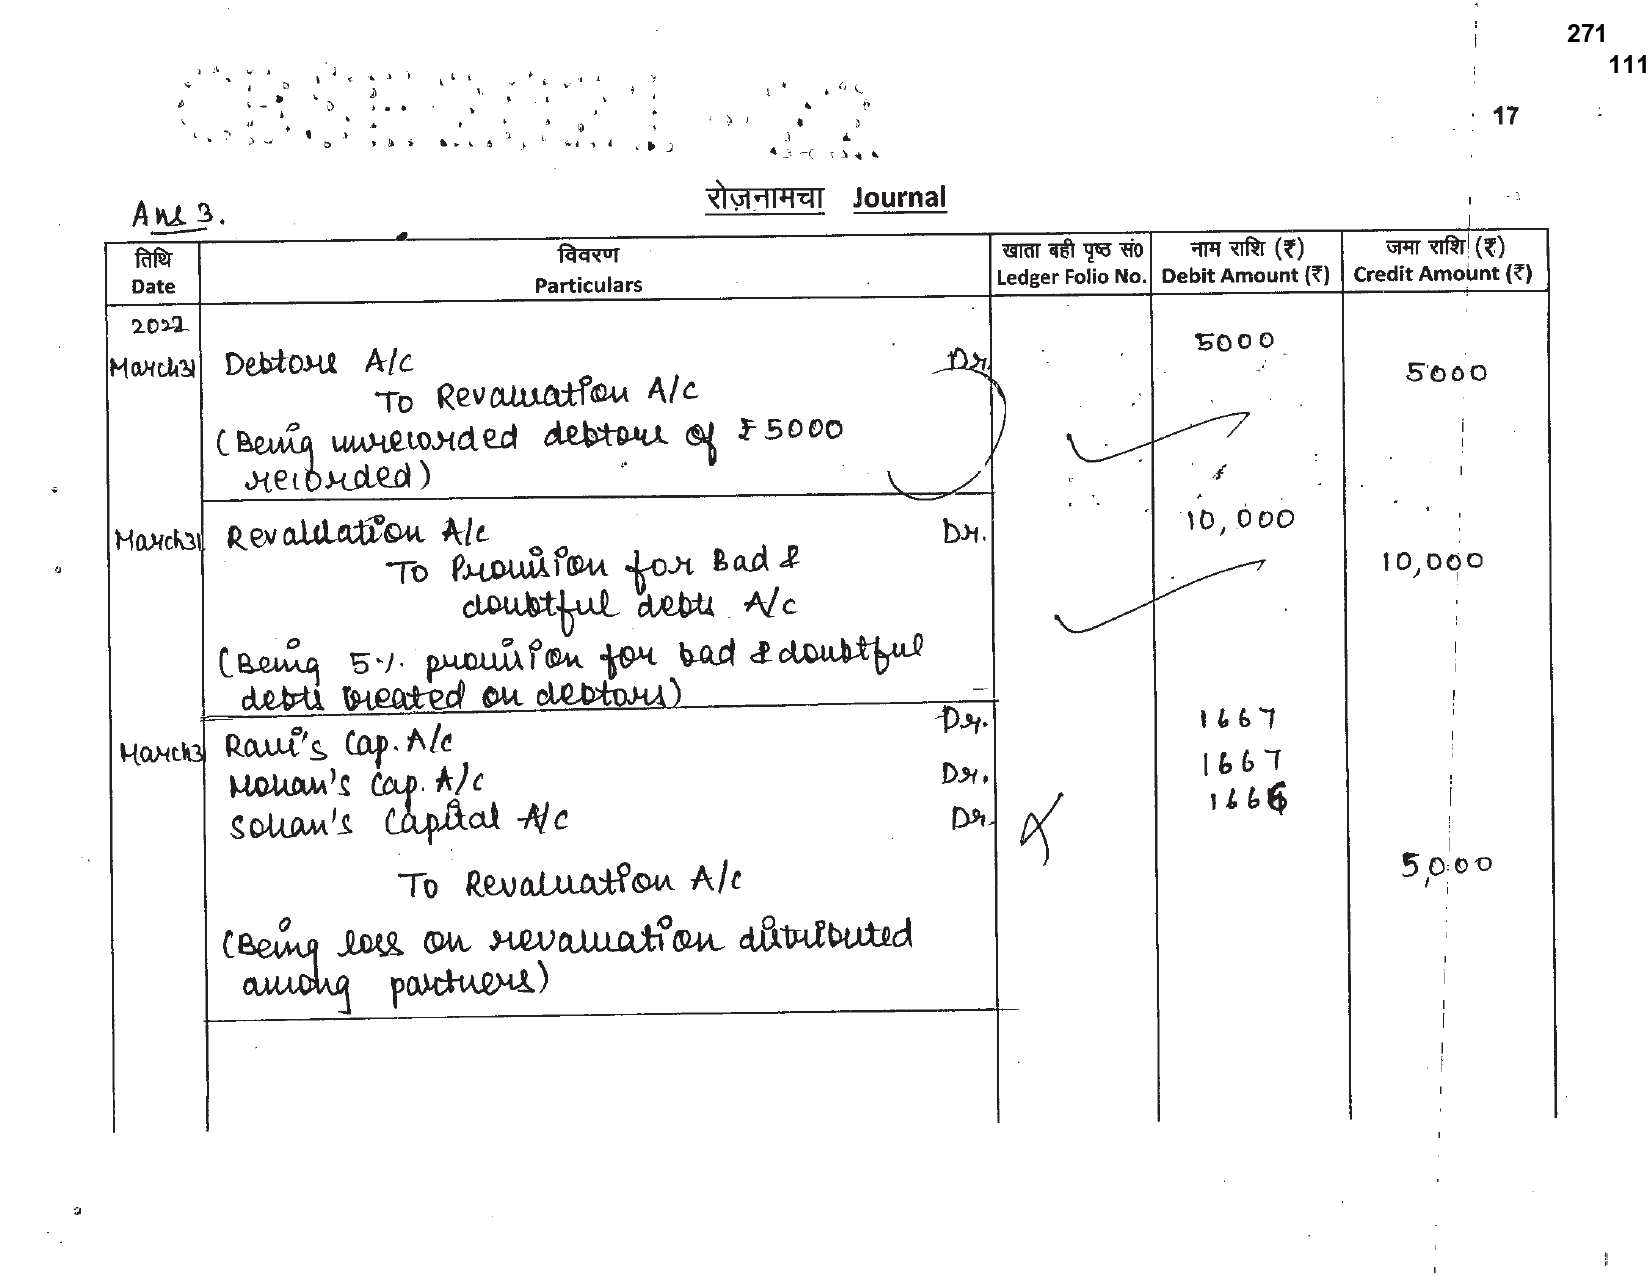 271
111
CBSE2021-22
17
रोज़नामचा Journal
Ans 3.
तिथि
Date
विवरण
Particulars
खाता बही पृष्ठ सं०
Ledger Folio No.
नाम राशि (₹)
Debit Amount (₹)
जमा राशि (₹)
Credit Amount (₹)
2022
March31 Debtors A/c Dr. 5000
To Revaluation A/c 5000
(Being unrecorded debtors of ₹5000
recorded)
March31 Revaluation A/c Dr. 10,000
To Provision for Bad &
doubtful debts A/c 10,000
(Being 5% provision for bad & doubtful
debts created on debtors)
March31 Ravi's Cap. A/c Dr. 1667
Mohan's Cap. A/c Dr. 1667
Sohan's Capital A/c Dr. 1666
To Revaluation A/c 5,000
(Being loss on revaluation distributed
among partners)